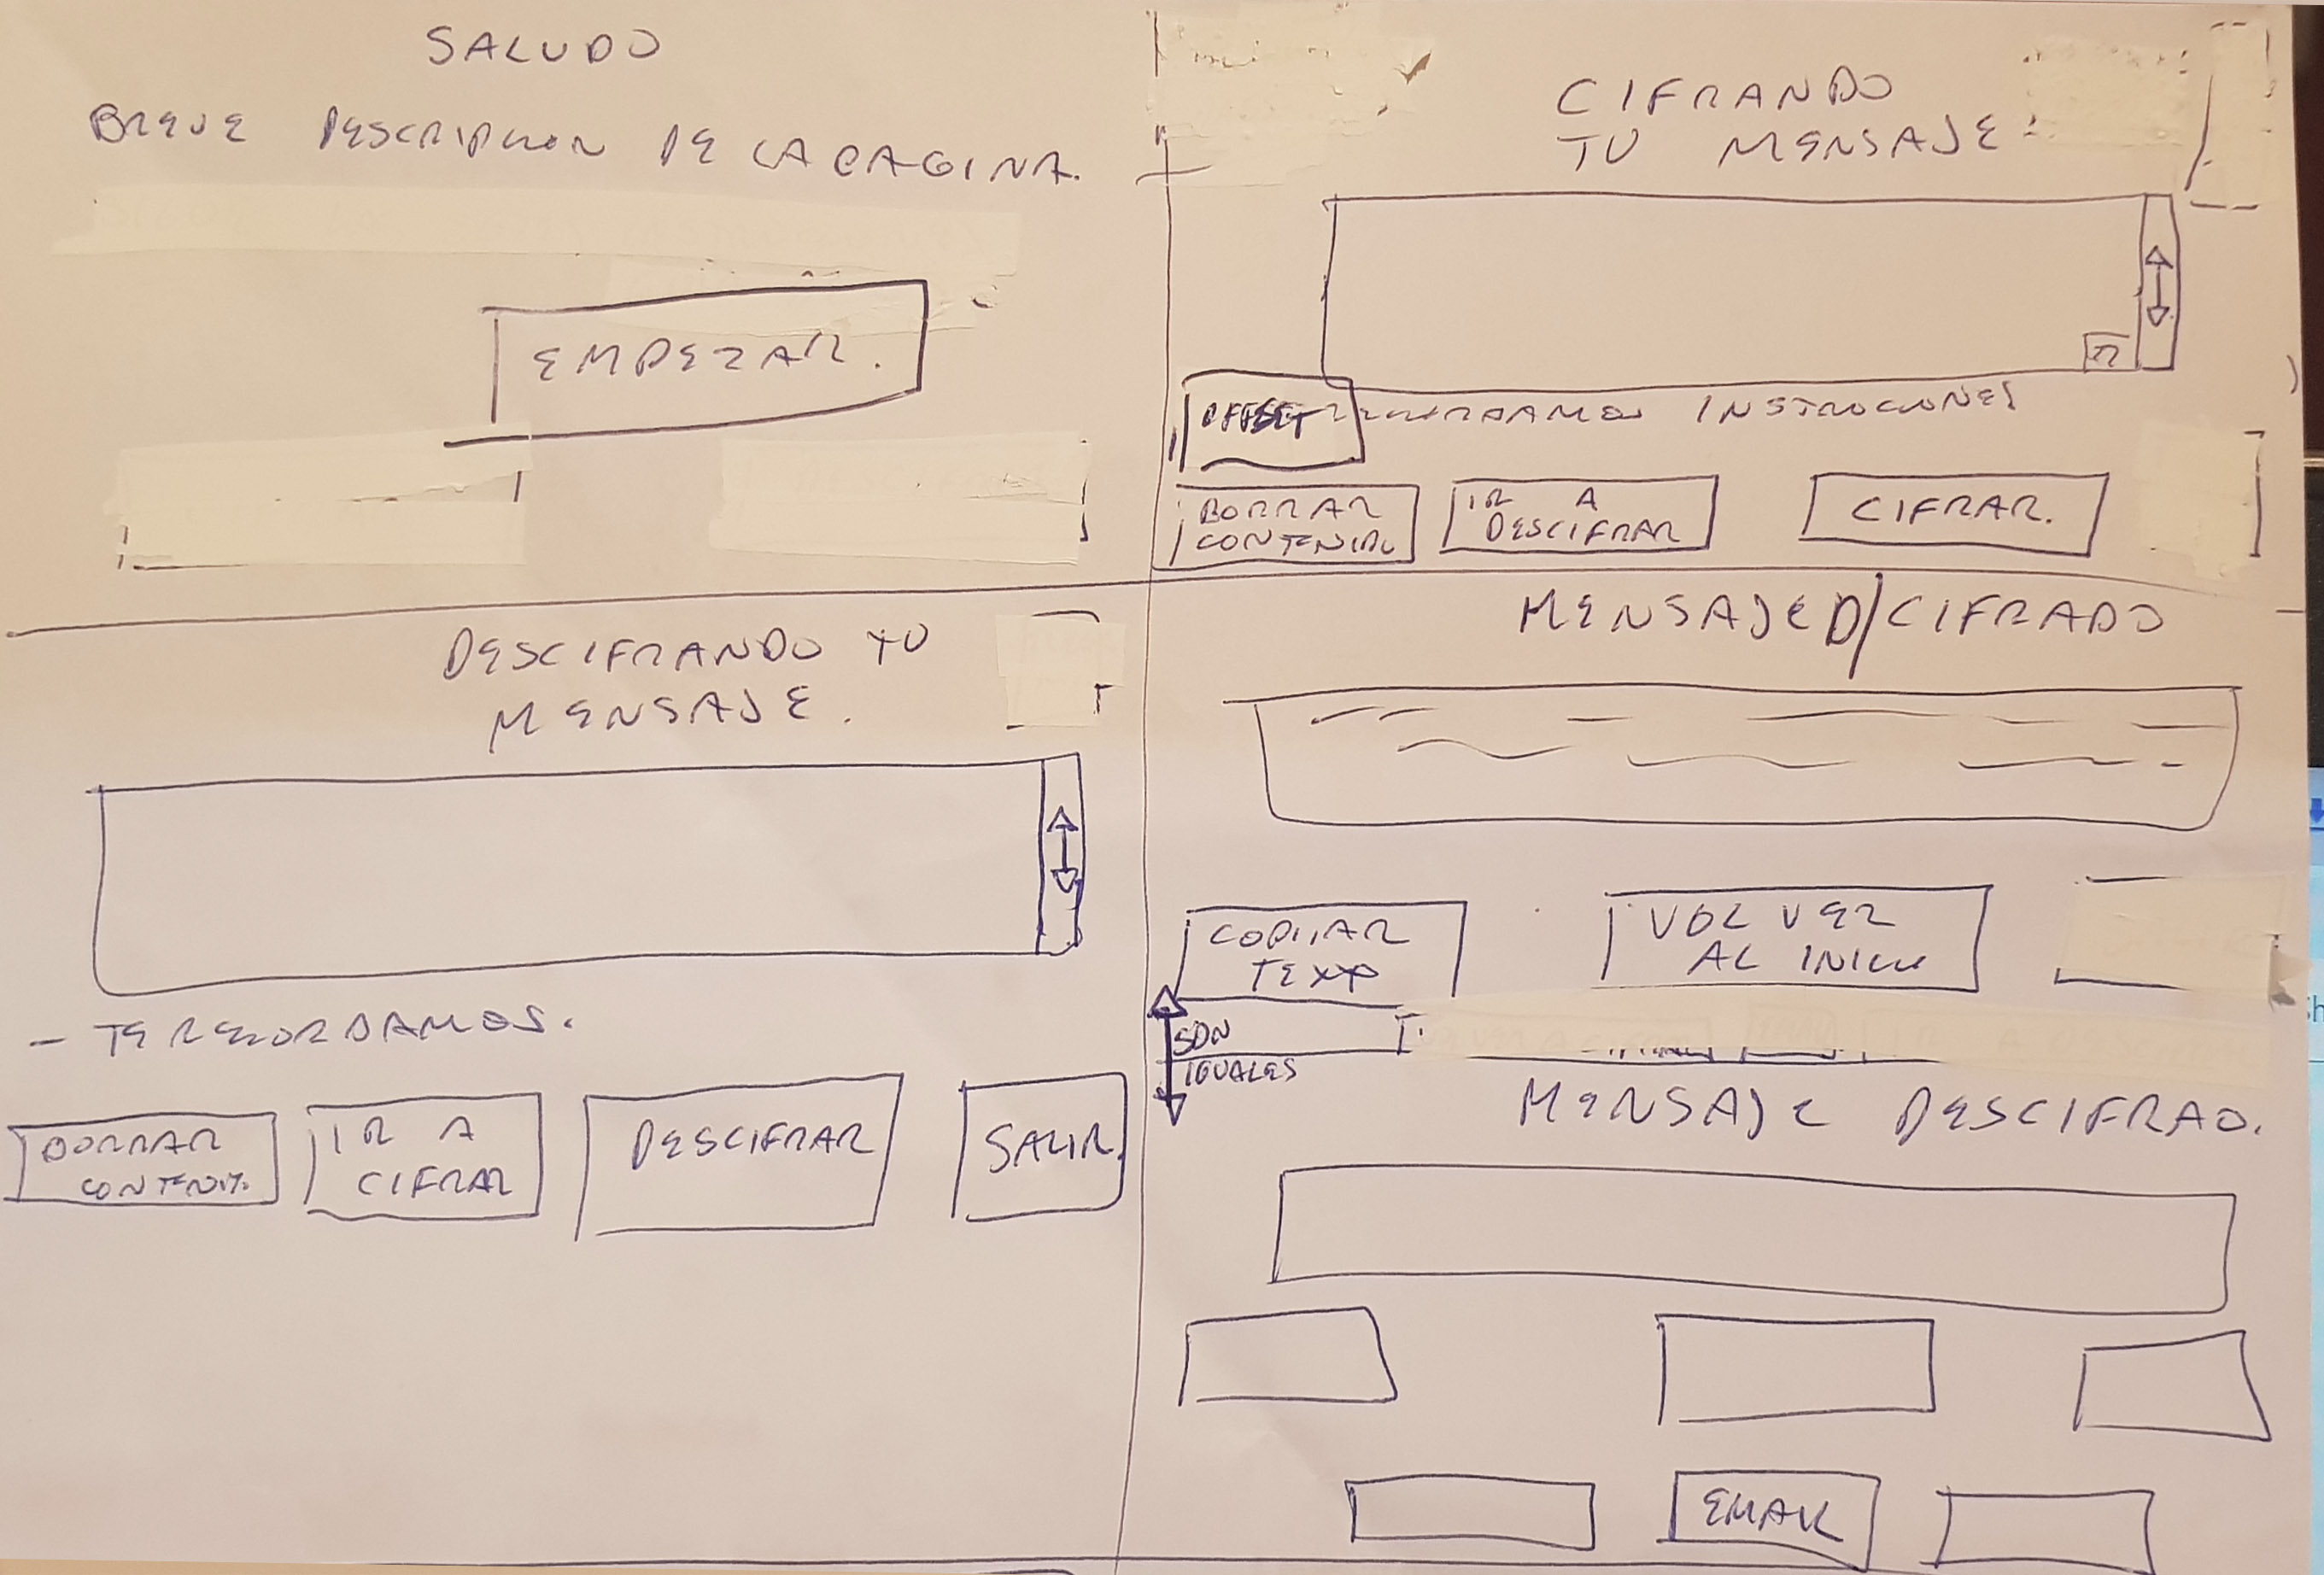 SALUDO
BREVE DESCRIPCION DE LA PAGINA.
EMPEZAR.
CIFRANDO
TU MENSAJE:
OFFSET
INSTRUCIONES
BORRAR
CONTENIDO
IR A
DESCIFRAR
CIFRAR.
DESCIFRANDO TU
MENSAJE.
- TE RECORDAMOS.
BORRAR
IR A
CIFRAR
DESCIFRAR
SALIR.
MENSAJE D/CIFRADO
COPIAR
TEXTO
VOLVER
AL INICIO
SON
IGUALES
MENSAJE DESCIFRAD.
EMAIL